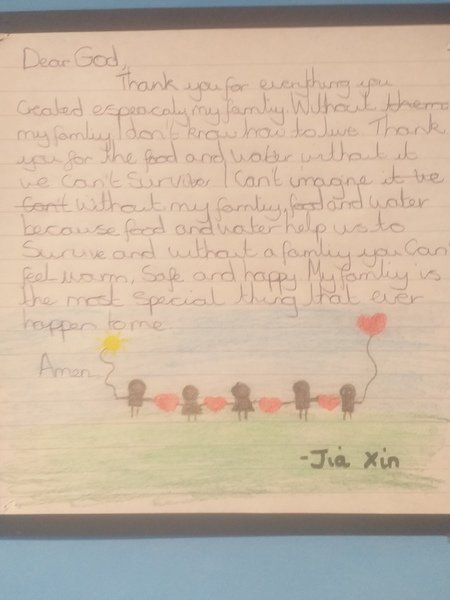 Dear God,
Thank you for everything you
created espeacaly my famliy. Without them
my famliy I don't know how to live. Thank
you for the food and water without it
we can't surviber I can't imagine it we
can't without my famliy, food and water
because food and water help us to
survive and without a famliy you can
feel warm, safe and happy. My famliy is
the most special thing that ever
happen to me.
Amen
-Jia Xin